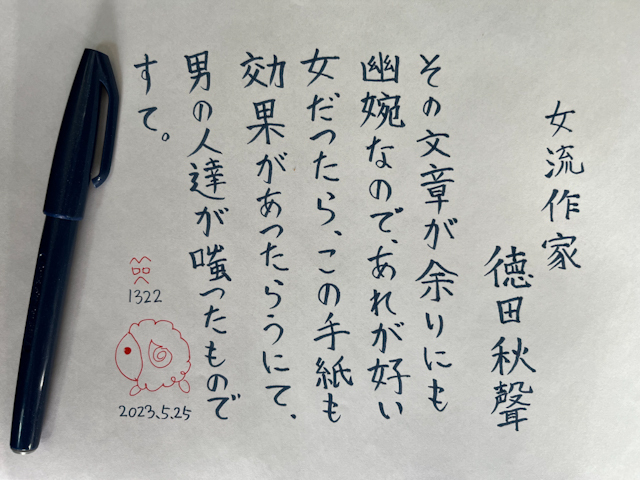 女流作家
徳田秋聲
その文章が余りにも
幽婉なので、あれが好い
女だつたら、この手紙も
効果があつたらうにて、
男の人達が嗤つたもので
すて。
1322
2023.5.25